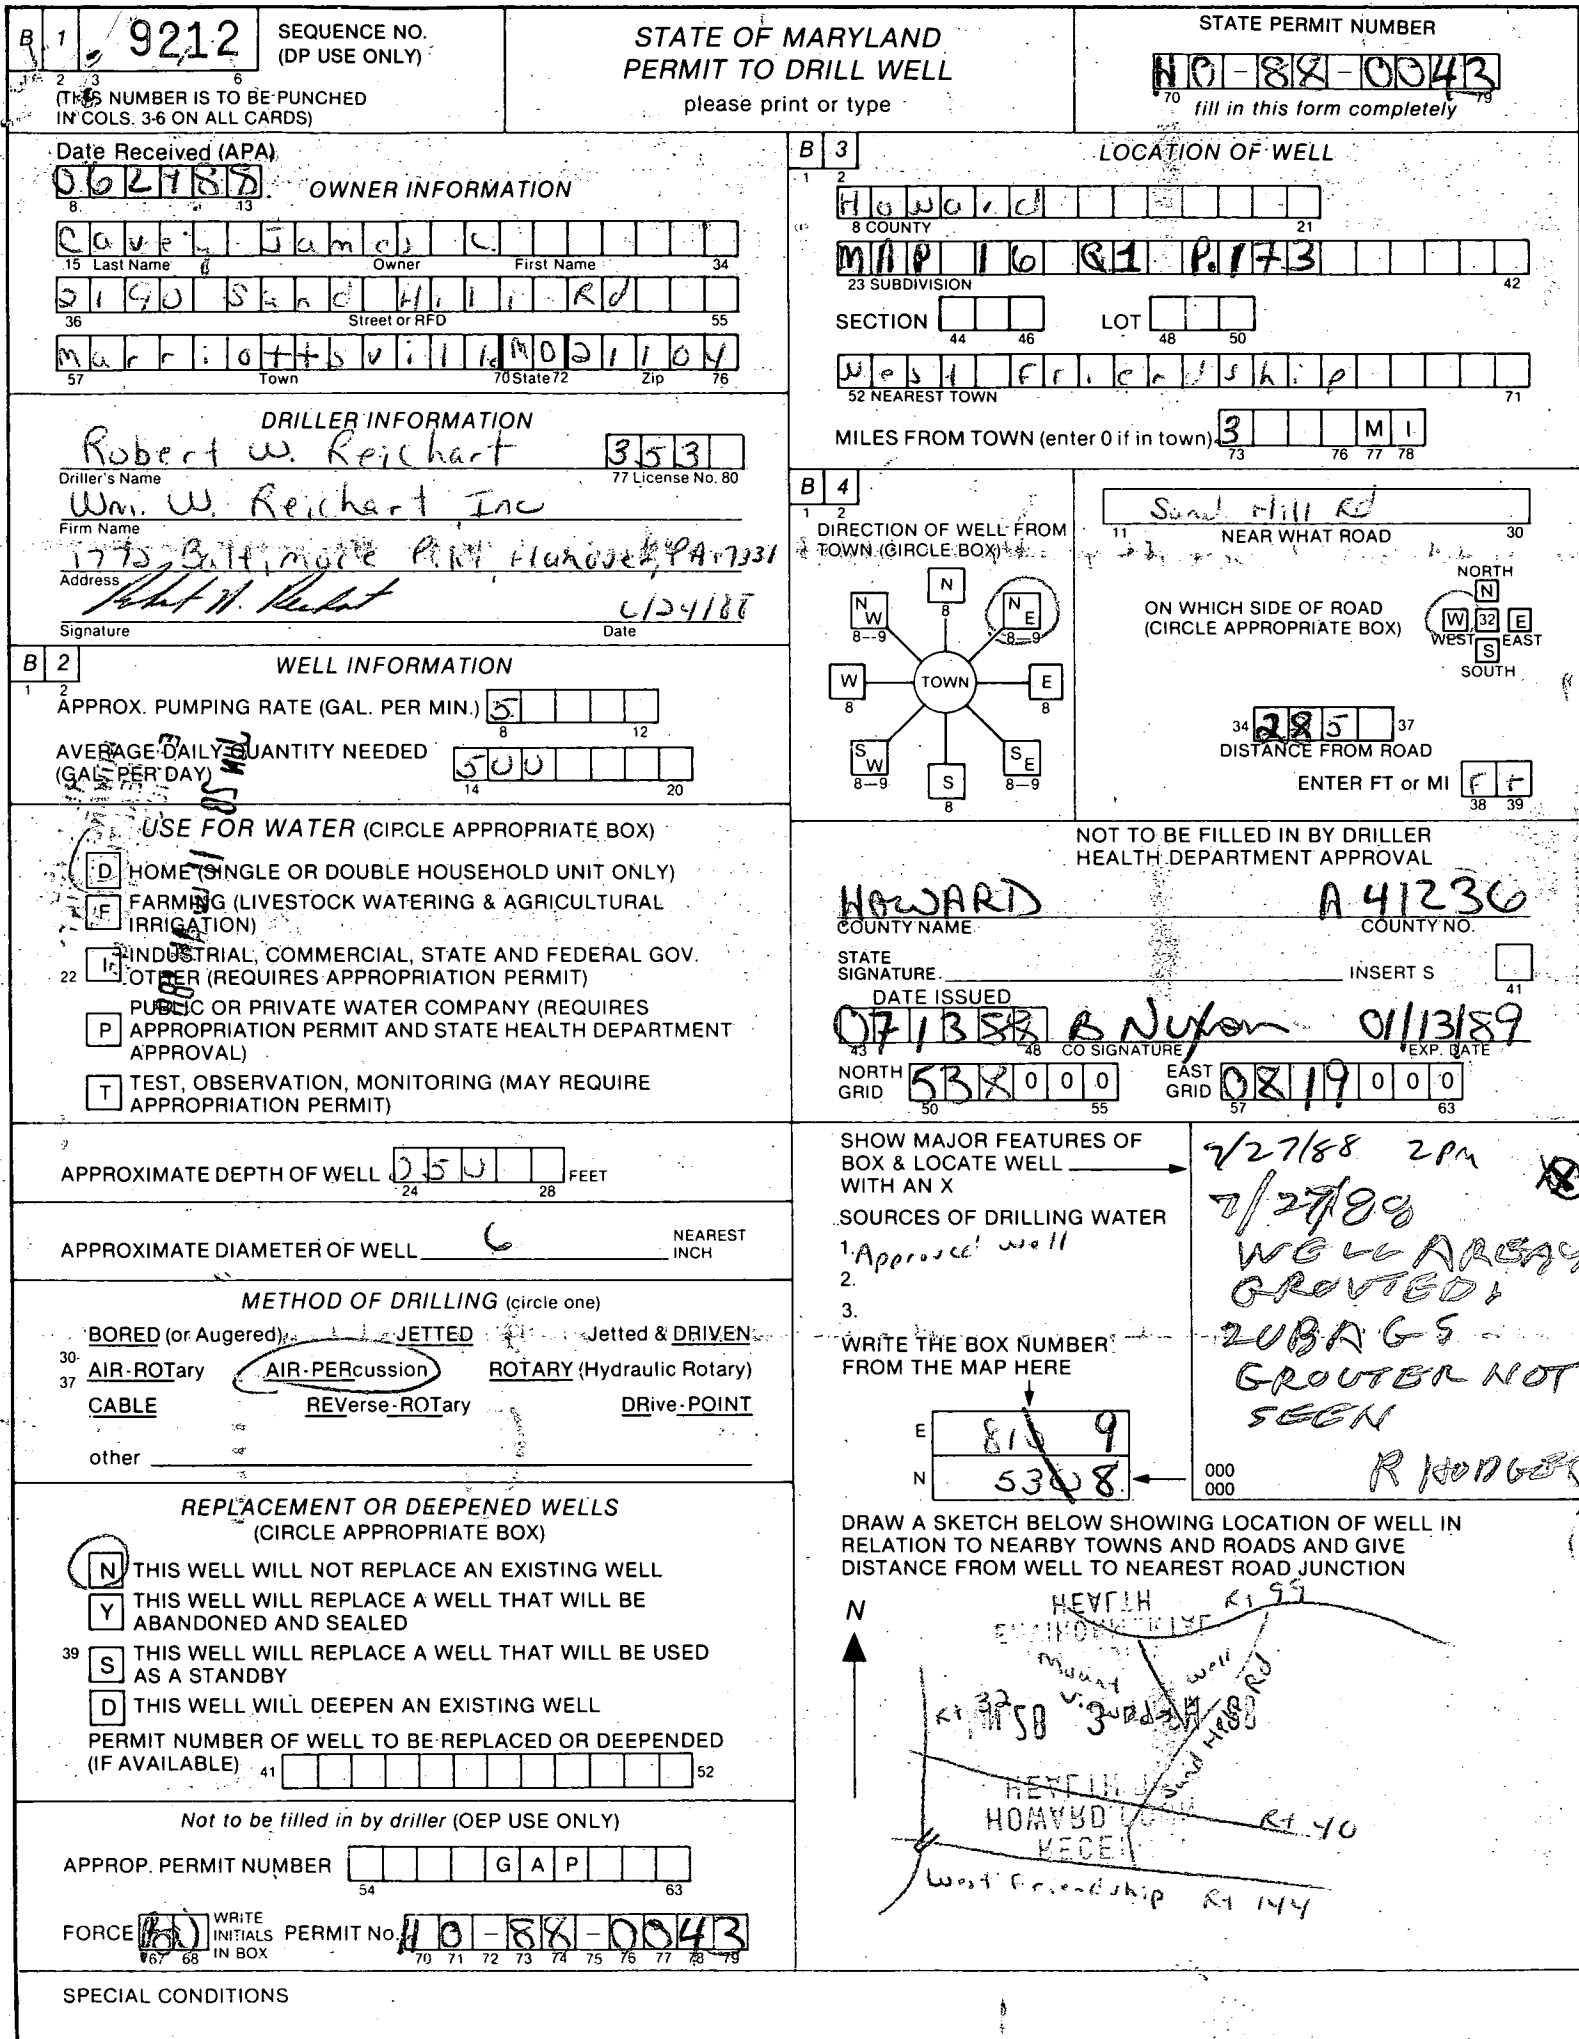 B 1 9212 SEQUENCE NO.
(DP USE ONLY)
1 2 3 6
(THIS NUMBER IS TO BE PUNCHED
IN COLS. 3-6 ON ALL CARDS)
STATE OF MARYLAND
PERMIT TO DRILL WELL
please print or type
STATE PERMIT NUMBER
HO-88-0043
70 79
fill in this form completely
Date Received (APA)
8 13
OWNER INFORMATION
James C.
15 Last Name Owner First Name 34
2190 Sand Hill Rd
36 Street or RFD 55
Marriottsville MD 21104
57 Town 70 State 72 Zip 76
DRILLER INFORMATION
Robert W. Reichart 353
Driller's Name 77 License No. 80
Wm. W. Reichart Inc
Firm Name
1772 Baltimore Pike Hanover, PA 17331
Address
6/24/88
Signature Date
B 2 WELL INFORMATION
1 2
APPROX. PUMPING RATE (GAL. PER MIN.) 5
8 12
AVERAGE DAILY QUANTITY NEEDED
(GAL. PER DAY) 500
14 20
USE FOR WATER (CIRCLE APPROPRIATE BOX)
D HOME (SINGLE OR DOUBLE HOUSEHOLD UNIT ONLY)
F FARMING (LIVESTOCK WATERING & AGRICULTURAL
IRRIGATION)
I INDUSTRIAL, COMMERCIAL, STATE AND FEDERAL GOV.
22 OTHER (REQUIRES APPROPRIATION PERMIT)
PUBLIC OR PRIVATE WATER COMPANY (REQUIRES
P APPROPRIATION PERMIT AND STATE HEALTH DEPARTMENT
APPROVAL)
T TEST, OBSERVATION, MONITORING (MAY REQUIRE
APPROPRIATION PERMIT)
APPROXIMATE DEPTH OF WELL 250 FEET
24 28
APPROXIMATE DIAMETER OF WELL 6 NEAREST
INCH
METHOD OF DRILLING (circle one)
BORED (or Augered) JETTED Jetted & DRIVEN
30-
37 AIR-ROTary AIR-PERcussion ROTARY (Hydraulic Rotary)
CABLE REVerse-ROTary DRive-POINT
other
REPLACEMENT OR DEEPENED WELLS
(CIRCLE APPROPRIATE BOX)
N THIS WELL WILL NOT REPLACE AN EXISTING WELL
Y THIS WELL WILL REPLACE A WELL THAT WILL BE
ABANDONED AND SEALED
39 S THIS WELL WILL REPLACE A WELL THAT WILL BE USED
AS A STANDBY
D THIS WELL WILL DEEPEN AN EXISTING WELL
PERMIT NUMBER OF WELL TO BE REPLACED OR DEEPENED
(IF AVAILABLE) 41 52
Not to be filled in by driller (OEP USE ONLY)
APPROP. PERMIT NUMBER G A P
54 63
FORCE WRITE INITIALS IN BOX PERMIT No. HO-88-0043
67 68 70 71 72 73 74 75 76 77 78 79
SPECIAL CONDITIONS
B 3 LOCATION OF WELL
1 2
Howard
8 COUNTY 21
MAP 16 G1 P.173
23 SUBDIVISION 42
SECTION LOT
44 46 48 50
West Friendship
52 NEAREST TOWN 71
MILES FROM TOWN (enter 0 if in town) 3 M I
73 76 77 78
B 4
1 2
DIRECTION OF WELL FROM
TOWN (CIRCLE BOX)
N
8
NW NE
8-9 8-9
W TOWN E
8 8
SW SE
8-9 8-9
S
8
Sand Hill Rd
11 NEAR WHAT ROAD 30
ON WHICH SIDE OF ROAD
(CIRCLE APPROPRIATE BOX)
NORTH
N
W 32 E
WEST EAST
S
SOUTH
34 285 37
DISTANCE FROM ROAD
ENTER FT or MI Ft
38 39
NOT TO BE FILLED IN BY DRILLER
HEALTH DEPARTMENT APPROVAL
HOWARD A 41236
COUNTY NAME COUNTY NO.
STATE
SIGNATURE INSERT S
41
DATE ISSUED
071388 B Nixon 01/13/89
43 48 CO SIGNATURE EXP. DATE
NORTH GRID 538 000 EAST GRID 0819 000
50 55 57 63
SHOW MAJOR FEATURES OF
BOX & LOCATE WELL
WITH AN X
SOURCES OF DRILLING WATER
1. Approved well
2.
3.
WRITE THE BOX NUMBER
FROM THE MAP HERE
E 9
N 8
000
000
7/27/88 2 PM
7/27/88
WELL
GROUTED
20 BAGS
GROUTER NOT
SEEN
R HODGES
DRAW A SKETCH BELOW SHOWING LOCATION OF WELL IN
RELATION TO NEARBY TOWNS AND ROADS AND GIVE
DISTANCE FROM WELL TO NEAREST ROAD JUNCTION
N
Rt 99
HEALTH
well
Rt 32
Rt 40
HOWARD
West Friendship Rt 144